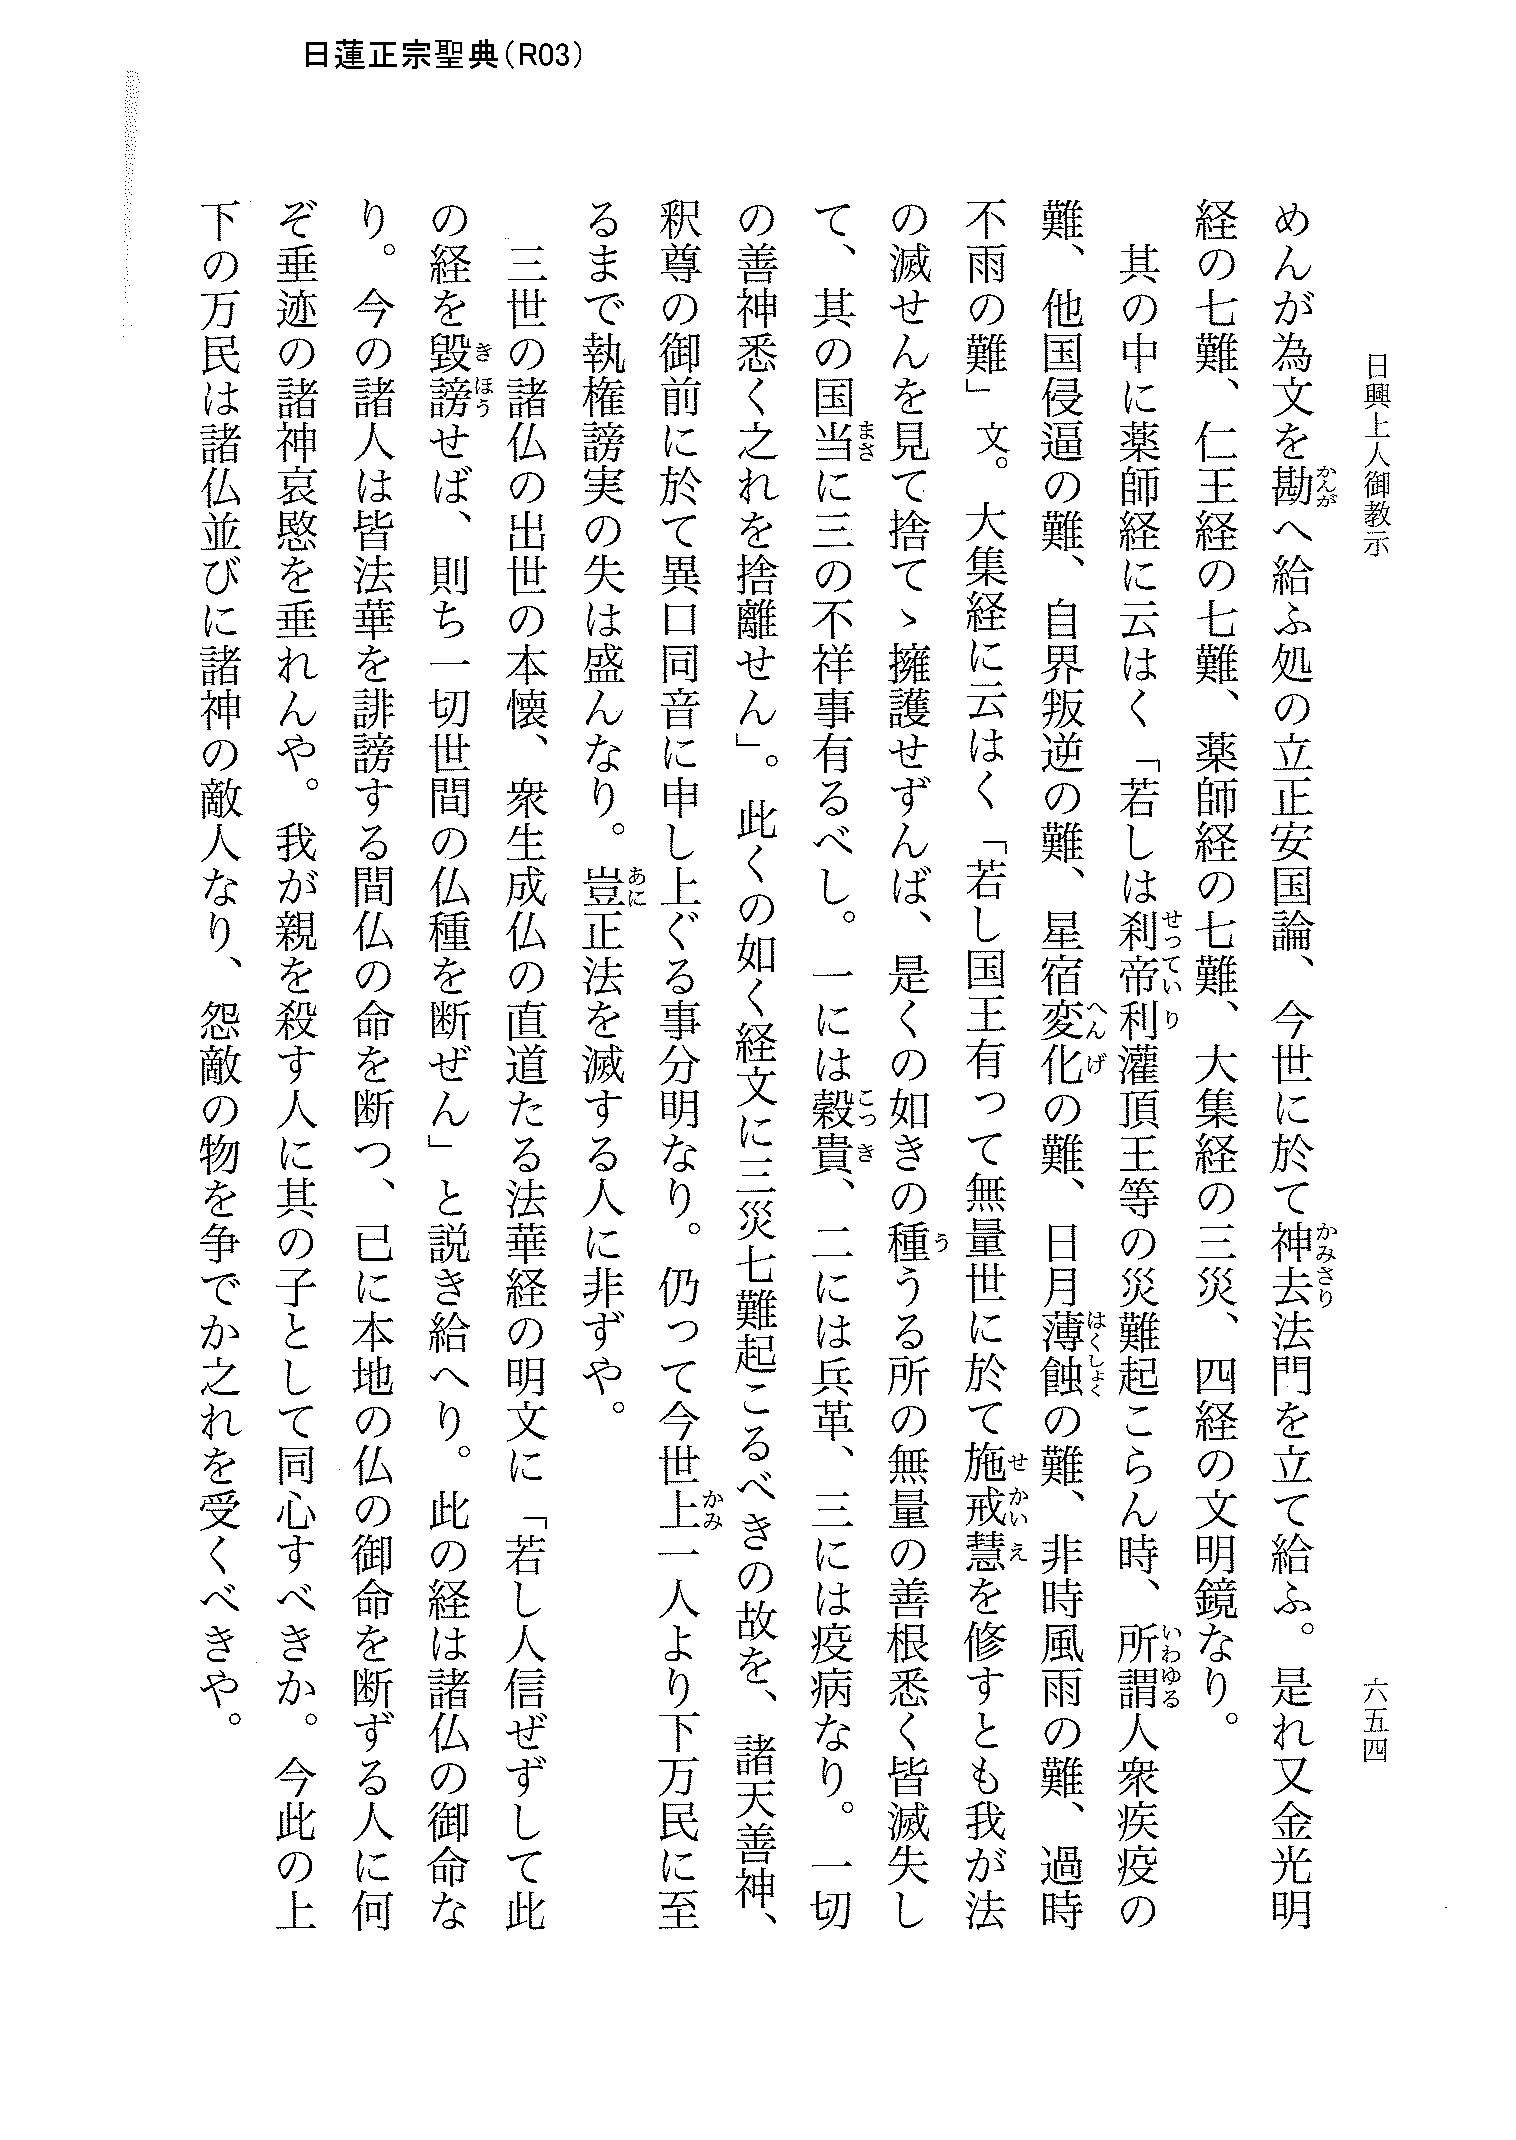 日蓮正宗聖典（R03）
日興上人御教示
六五四
めんが為文を勘へ給ふ処の立正安国論、今世に於て神去法門を立て給ふ。是れ又金光明
経の七難、仁王経の七難、薬師経の七難、大集経の三災、四経の文明鏡なり。
其の中に薬師経に云はく「若しは刹帝利灌頂王等の災難起こらん時、所謂人衆疾疫の
難、他国侵逼の難、自界叛逆の難、星宿変化の難、日月薄蝕の難、非時風雨の難、過時
不雨の難」文。大集経に云はく「若し国王有って無量世に於て施戒慧を修すとも我が法
の滅せんを見て捨てゝ擁護せずんば、是くの如きの種うる所の無量の善根悉く皆滅失し
て、其の国当に三の不祥事有るべし。一には穀貴、二には兵革、三には疫病なり。一切
の善神悉く之れを捨離せん」。此くの如く経文に三災七難起こるべきの故を、諸天善神、
釈尊の御前に於て異口同音に申し上ぐる事分明なり。仍って今世上一人より下万民に至
るまで執権謗実の失は盛んなり。豈正法を滅する人に非ずや。
三世の諸仏の出世の本懐、衆生成仏の直道たる法華経の明文に「若し人信ぜずして此
の経を毀謗せば、則ち一切世間の仏種を断ぜん」と説き給へり。此の経は諸仏の御命な
り。今の諸人は皆法華を誹謗する間仏の命を断つ、已に本地の仏の御命を断ずる人に何
ぞ垂迹の諸神哀愍を垂れんや。我が親を殺す人に其の子として同心すべきか。今此の上
下の万民は諸仏並びに諸神の敵人なり、怨敵の物を争でか之れを受くべきや。